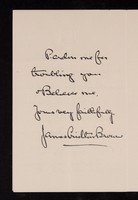 Pardon me for
troubling you
& Believe me
Yours very faithfully
James Brown